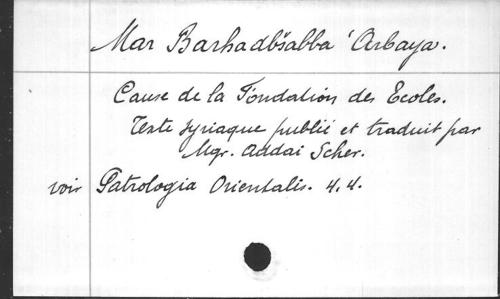 Mar Barhadbšabba ‘Arbaya.
Cause de la Fondation des Ecoles.
Texte syriaque publié et traduit par
Mgr. Addai Scher.
voir Patrologia Orientalis. 4.4.